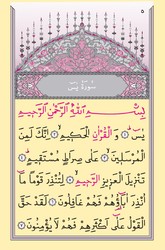 ٥
سُورَةُ يسٓ
بِسْمِ اللَّهِ الرَّحْمَٰنِ الرَّحِيمِ
يسٓ ﴿١﴾ وَالْقُرْآنِ الْحَكِيمِ ﴿٢﴾ إِنَّكَ لَمِنَ
الْمُرْسَلِينَ ﴿٣﴾ عَلَىٰ صِرَاطٍ مُّسْتَقِيمٍ ﴿٤﴾
تَنزِيلَ الْعَزِيزِ الرَّحِيمِ ﴿٥﴾ لِتُنذِرَ قَوْمًا مَّا
أُنذِرَ آبَاؤُهُمْ فَهُمْ غَافِلُونَ ﴿٦﴾ لَقَدْ حَقَّ
الْقَوْلُ عَلَىٰ أَكْثَرِهِمْ فَهُمْ لَا يُؤْمِنُونَ ﴿٧﴾